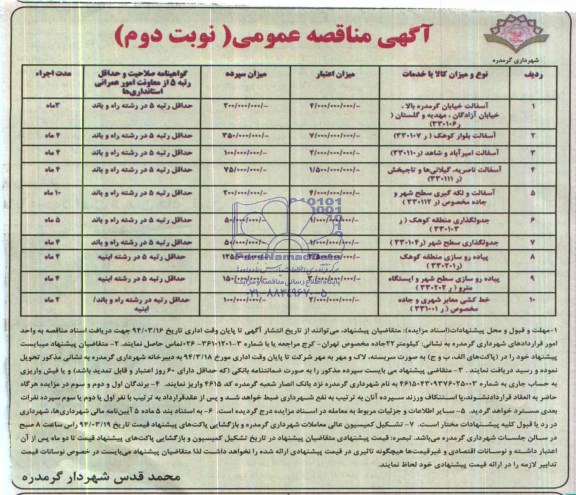 آگهی مناقصه عمومی( نوبت دوم)
شهرداری گرمدره
ردیف نوع و میزان کالا یا خدمات میزان اعتبار میزان سپرده گواهینامه صلاحیت و حداقل رتبه ۵ از معاونت امور عمرانی استانداری‌ها مدت اجراء
۱ آسفالت خیابان گرمدره بالا ، خیابان آزادگان ، مهدیه و گلستان ( ر۳۳۰۱۰۶) ۴/۰۰۰/۰۰۰/۰۰۰/- ۲۰۰/۰۰۰/۰۰۰/- حداقل رتبه ۵ در رشته راه و باند ۳ماه
۲ آسفالت بلوار کوهک ( ر ۳۳۰۱۰۷) ۷/۰۰۰/۰۰۰/۰۰۰/- ۳۵۰/۰۰۰/۰۰۰/- حداقل رتبه ۵ در رشته راه و باند ۴ ماه
۳ آسفالت امیرآباد و شاهد (ر۳۳۰۱۱۰) ۲/۰۰۰/۰۰۰/۰۰۰/- ۱۰۰/۰۰۰/۰۰۰/- حداقل رتبه ۵ در رشته راه و باند ۴ ماه
۴ آسفالت ناصریه، گیلانی‌ها و تاجبخش (ر ۳۳۰۱۱۱) ۱/۵۰۰/۰۰۰/۰۰۰/- ۷۵/۰۰۰/۰۰۰/- حداقل رتبه ۵ در رشته راه و باند ۴ ماه
۵ آسفالت و لکه گیری سطح شهر و جاده مخصوص (ر ۳۳۰۱۱۲) ۴/۰۰۰/۰۰۰/۰۰۰/- ۲۰۰/۰۰۰/۰۰۰/- حداقل رتبه ۵ در رشته راه و باند ۱۰ ماه
۶ جدولگذاری منطقه کوهک ( ر ۳۳۰۱۰۳) ۱/۰۰۰/۰۰۰/۰۰۰/- ۵۰/۰۰۰/۰۰۰/- حداقل رتبه ۵ در رشته راه و باند ۵ ماه
۷ جدولگذاری سطح شهر (ر۳۳۰۱۰۴) ۱/۰۰۰/۰۰۰/۰۰۰/- ۵۰/۰۰۰/۰۰۰/- حداقل رتبه ۵ در رشته راه و باند ۴ ماه
۸ پیاده رو سازی منطقه کوهک (ر۳۳۰۲۰۱) ۱۲۵/۰۰۰/۰۰۰/- حداقل رتبه ۵ در رشته ابنیه ۴ ماه
۹ پیاده رو سازی سطح شهر و ایستگاه مترو ( ر ۳۳۰۲۰۲) ۳/۰۰۰/۰۰۰/۰۰۰/- ۱۵۰/۰۰۰/۰۰۰/- حداقل رتبه ۵ در رشته ابنیه ۴ ماه
۱۰ خط کشی معابر شهری و جاده مخصوص ( ر ۳۳۱۰۰۱) ۲/۰۰۰/۰۰۰/۰۰۰/- ۱۰۰/۰۰۰/۰۰۰/- حداقل رتبه ۵ در رشته راه و باند/ ابنیه ۴ ماه
ParsNamadData
پایگاه اطلاع رسانی مناقصه و مزایده
۰۲۱-۸۸۳۴۹۶۷۰-۵
۱-مهلت و قبول و محل پیشنهادات(اسناد مزایده): متقاضیان پیشنهاد، می‌توانند از تاریخ انتشار آگهی تا پایان وقت اداری تاریخ ۹۴/۰۳/۱۶ جهت دریافت اسناد مناقصه به واحد
امور قراردادهای شهرداری گرمدره به نشانی: کیلومتر۲۲جاده مخصوص تهران- کرج مراجعه یا با شماره ۳-۳۶۱۰۱۲۰۱-۰۲۶تماس حاصل نمایند. ۲- متقاضیان پیشنهاد میبایست
پیشنهاد خود را در (پاکت‌های الف، ب و ج) به صورت سربسته، لاک و مهر به مهر شرکت تا پایان وقت اداری مورخ ۹۴/۳/۱۸ به دبیرخانه شهرداری گرمدره به نشانی مذکور تحویل
نموده و رسید دریافت نمایند. ۳ - متقاضی پیشنهاد می بایست سپرده مذکور را به صورت ضمانتنامه بانکی (که حداقل دارای ۶۰ روز اعتبار و قابل تمدید باشد) و یا فیش واریزی
به حساب جاری به شماره ۴۶۱۵۰۴۳۰۹۳۷۶۰۲۵۰۰۳ به نام شهرداری گرمدره نزد بانک انصار شعبه گرمدره کد ۴۶۱۵ واریز نمایند. ۴ - برندگان اول و دوم و سوم در مزایده هرگاه
حاضر به انعقاد قراردادنشوند،یا استنکاف ورزند سپرده آنان به ترتیب به نفع شهرداری ضبط خواهد شد و پس از عقدقرارداد به ترتیب با نفر اول یا دوم یا سوم سپرده نفرات
بعدی مسترد خواهد گردید. ۵- سایر اطلاعات و جزئیات مربوط به معامله در اسناد مزایده درج گردیده است. ۶- به استناد بند ۵ ماده ۵ آیین‌نامه مالی شهرداری‌ها، شهرداری
در رد یا قبول کلیه پیشنهادات مختار است. ۷- تشکیل کمیسیون عالی معاملات شهرداری گرمدره و بازگشایی پاکت‌های پیشنهاد قیمت تاریخ ۹۴/۰۳/۱۹ راس ساعت ۸ صبح
در سالن جلسات شهرداری گرمدره می‌باشد. تبصره: قیمت پیشنهادی متقاضیان پیشنهاد در تاریخ تشکیل کمیسیون و بازگشایی پاکت‌های پیشنهاد قیمت تا دو ماه پس از آن
اعتبار داشته و نوسانات اقتصادی و غیرقیمت‌ها هیچگونه تاثیری در قیمت پیشنهادی ارائه شده را نخواهد داشت لذا متقاضیان پیشنهاد می‌بایست در خصوص نوسانات قیمت
تدابیر لازمه را در ارائه قیمت پیشنهادی خود لحاظ نمایند.
محمد قدس شهردار گرمدره